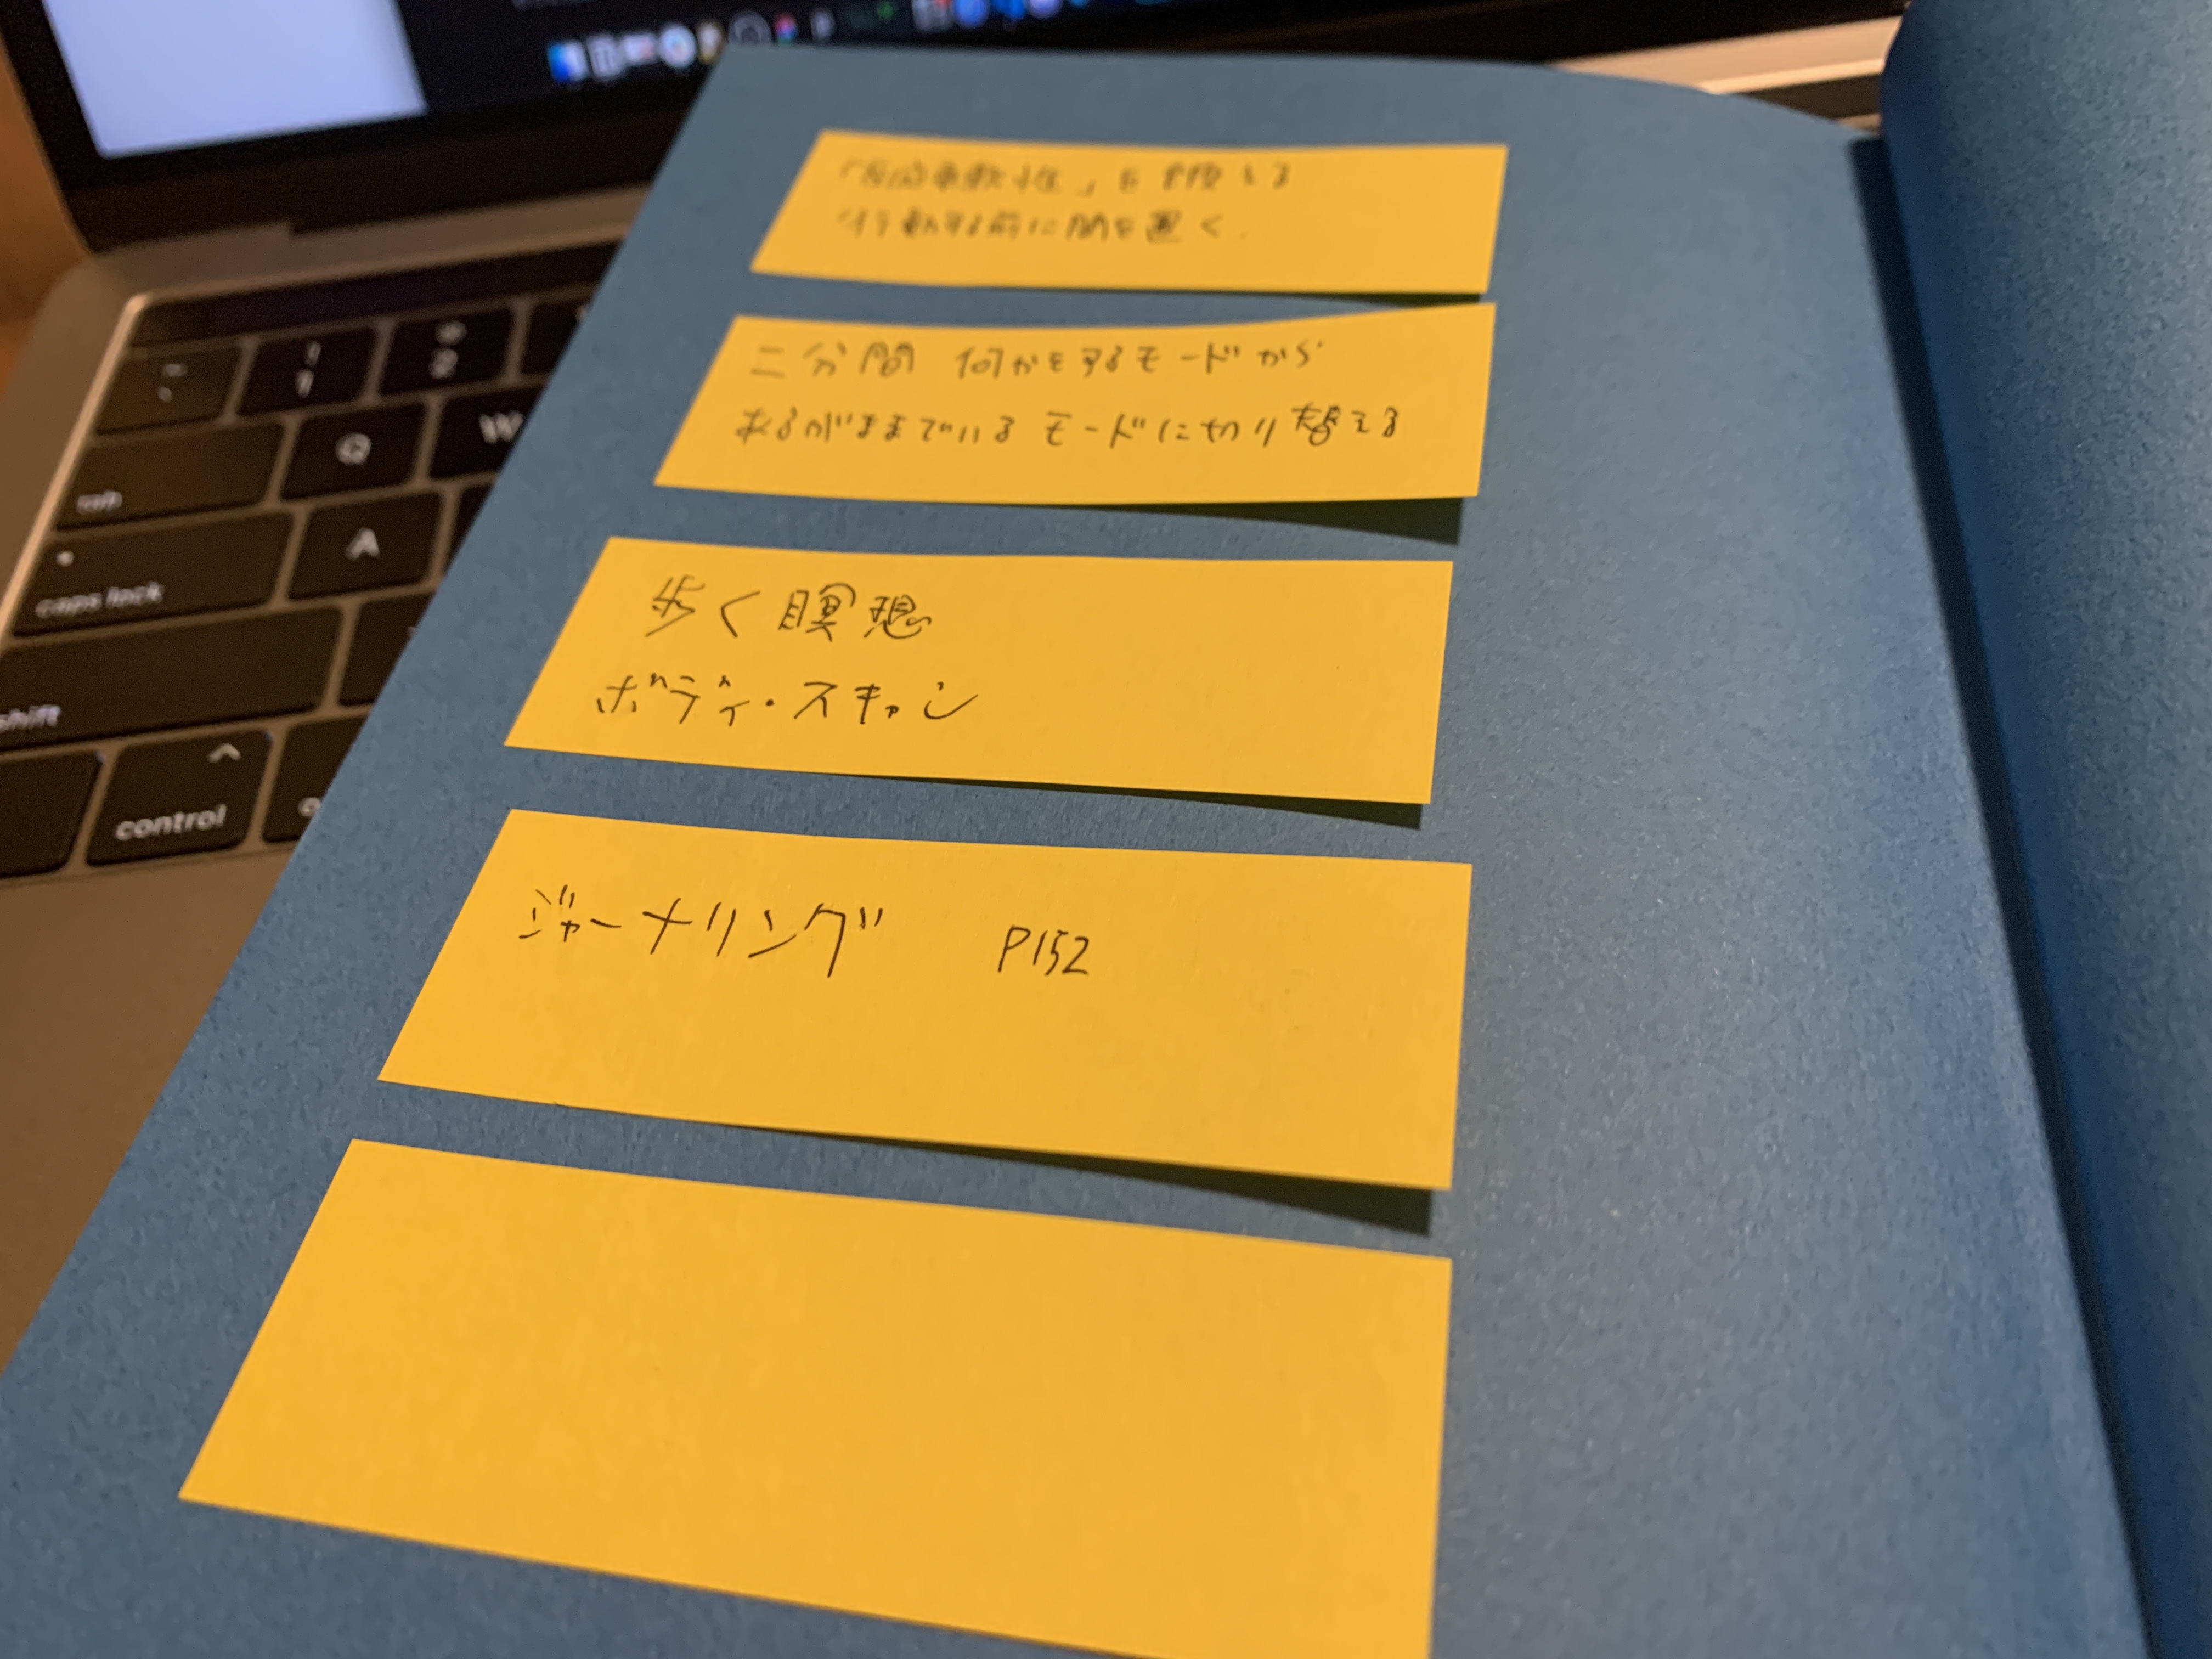 「反応柔軟性」を鍛える
行動する前に間を置く.
二分間 何かをするモードから
あるがままでいるモードに切り替える
歩く瞑想
ボディ・スキャン
ジャーナリング P152
~
`
!
1
@
2
tab
Q
W
caps lock
A
shift
^
control